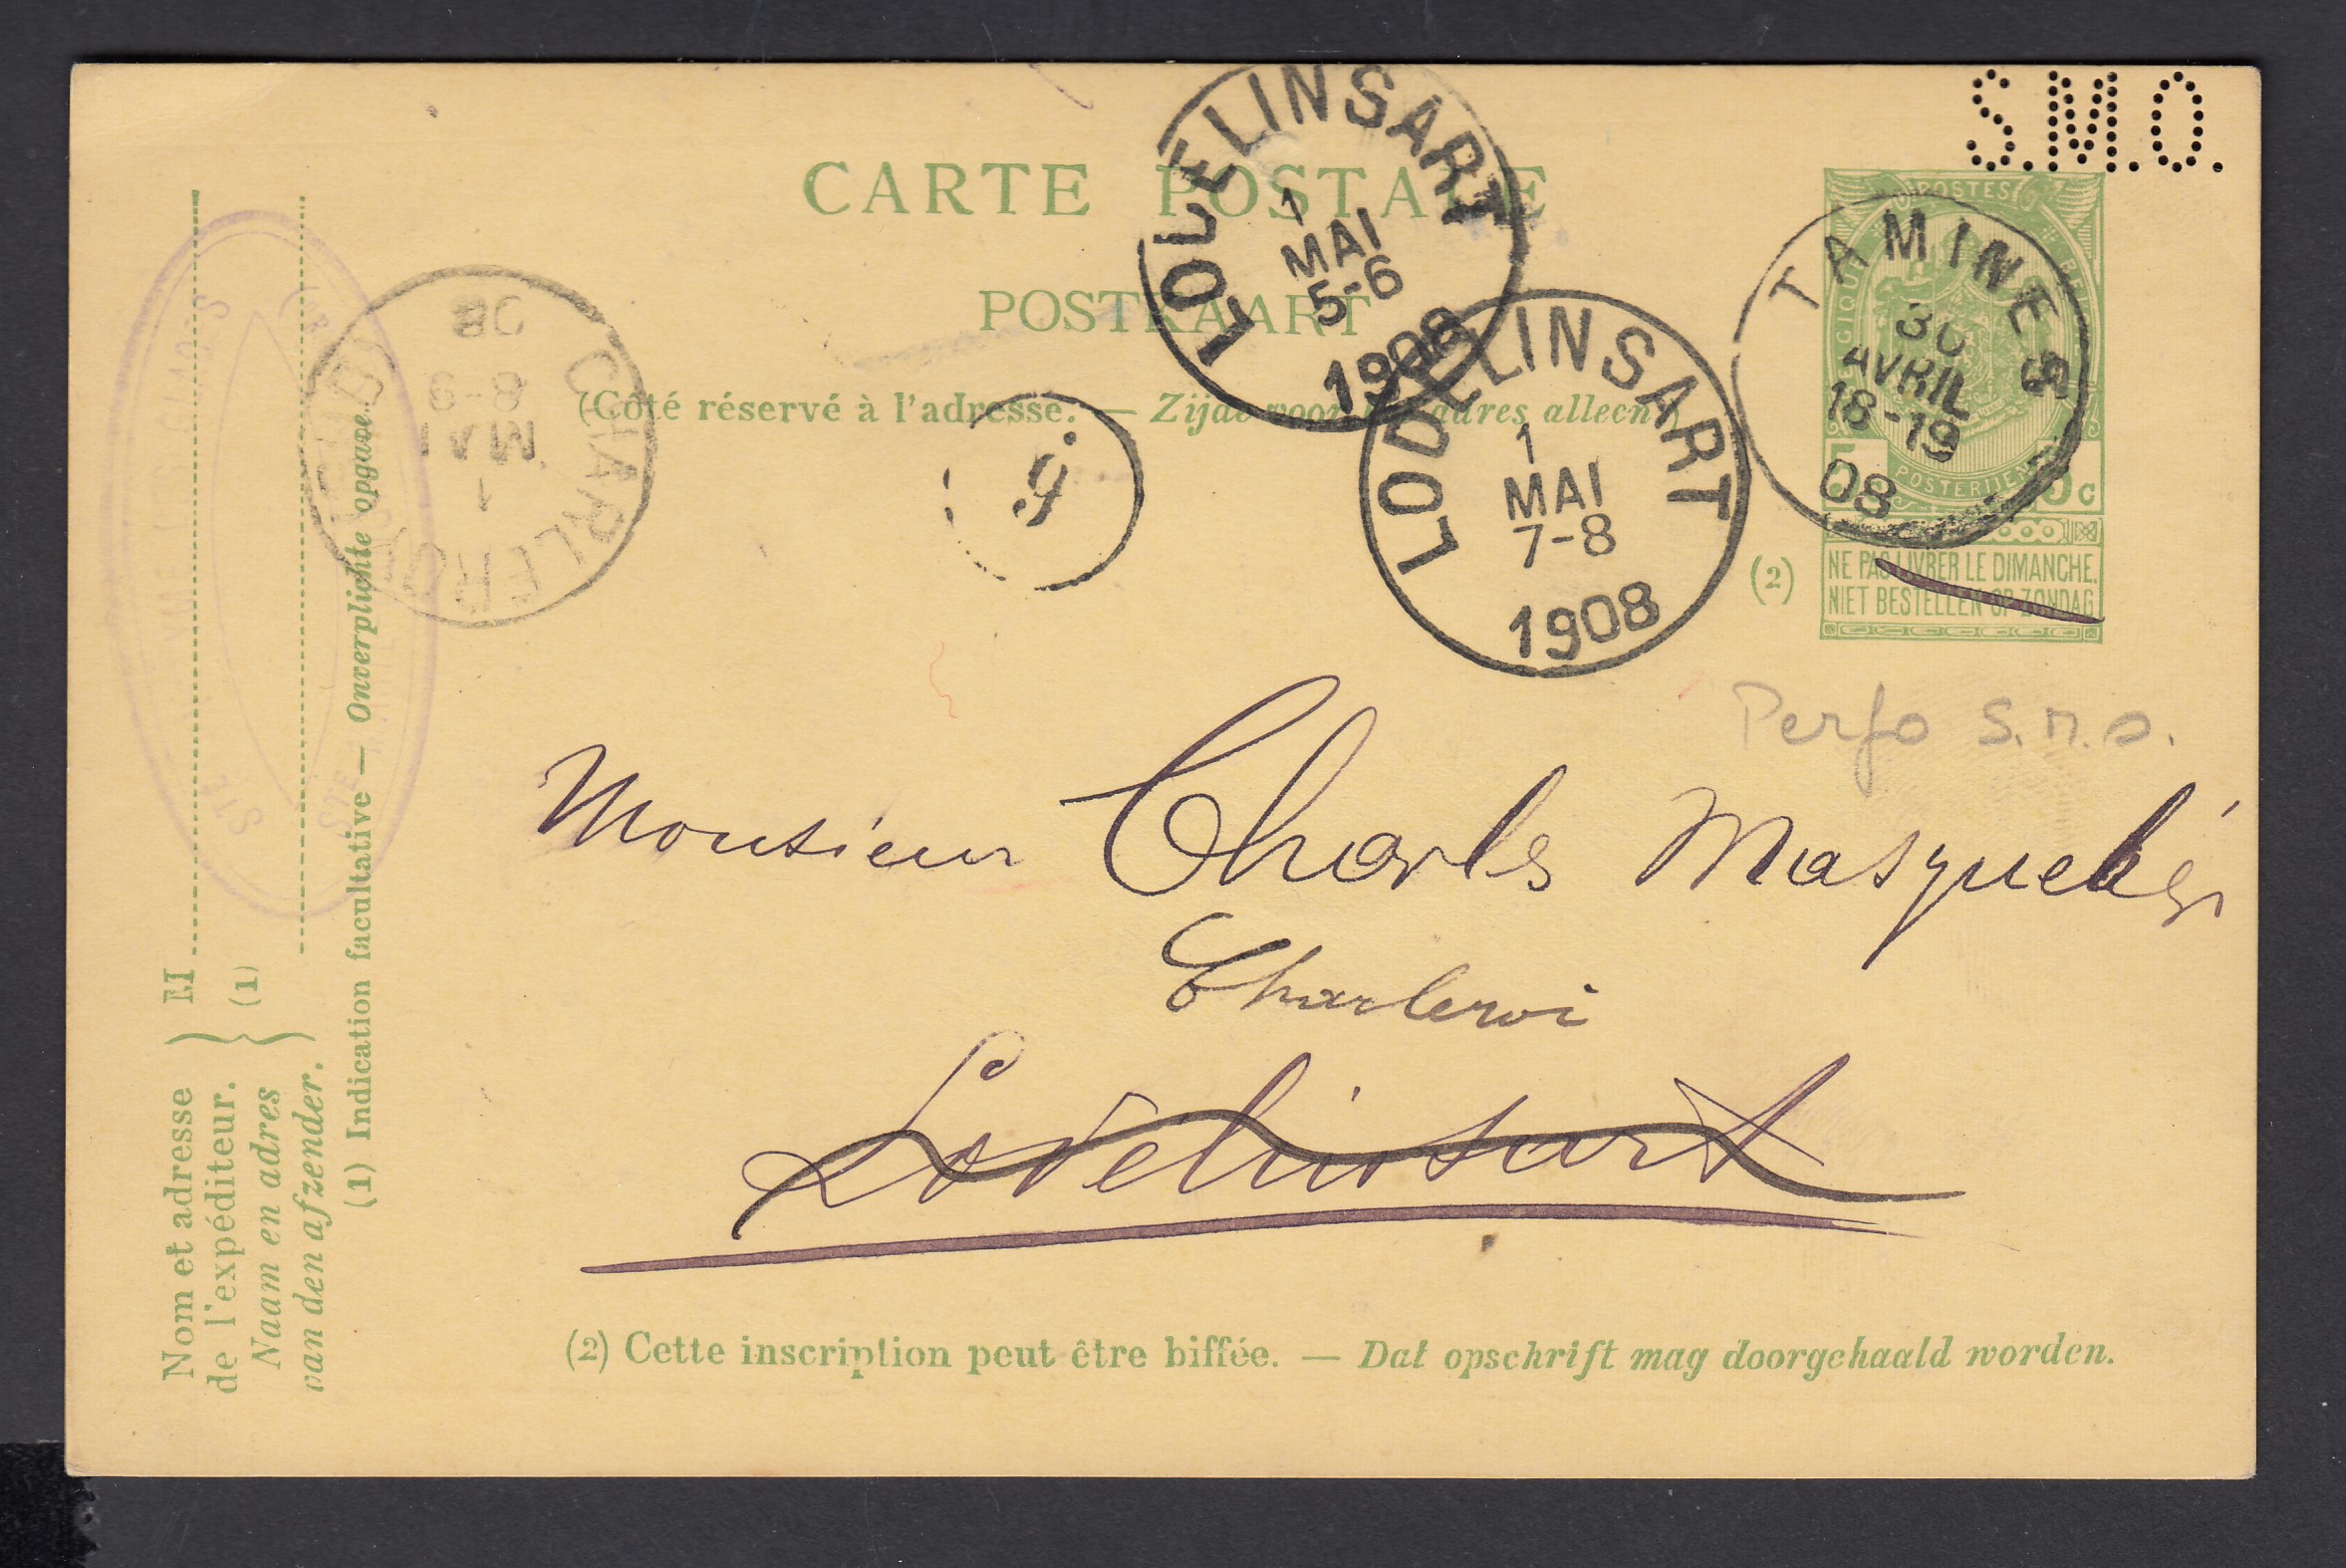 S.M.O.
CARTE POSTALE
POSTKAART
(Côté réservé à l'adresse. — Zijde voor het adres alleen.)
LODELINSART
1
MAI
5-6
1908
LODELINSART
1
MAI
7-8
1908
TAMINES
30
AVRIL
18-19
08
POSTES
POSTERIJEN
5 c
(2)
NE PAS LIVRER LE DIMANCHE.
NIET BESTELLEN OP ZONDAG
CHARLEROI
1
MAI
8-9
08
Perfo S.M.O.
Monsieur Charles Masquelier
Charleroi
Lodelinsart
(2) Cette inscription peut être biffée. — Dat opschrift mag doorgehaald worden.
Nom et adresse
de l'expéditeur.
Naam en adres
van den afzender.
M
(1)
(1) Indication facultative — Onverplichte opgave.